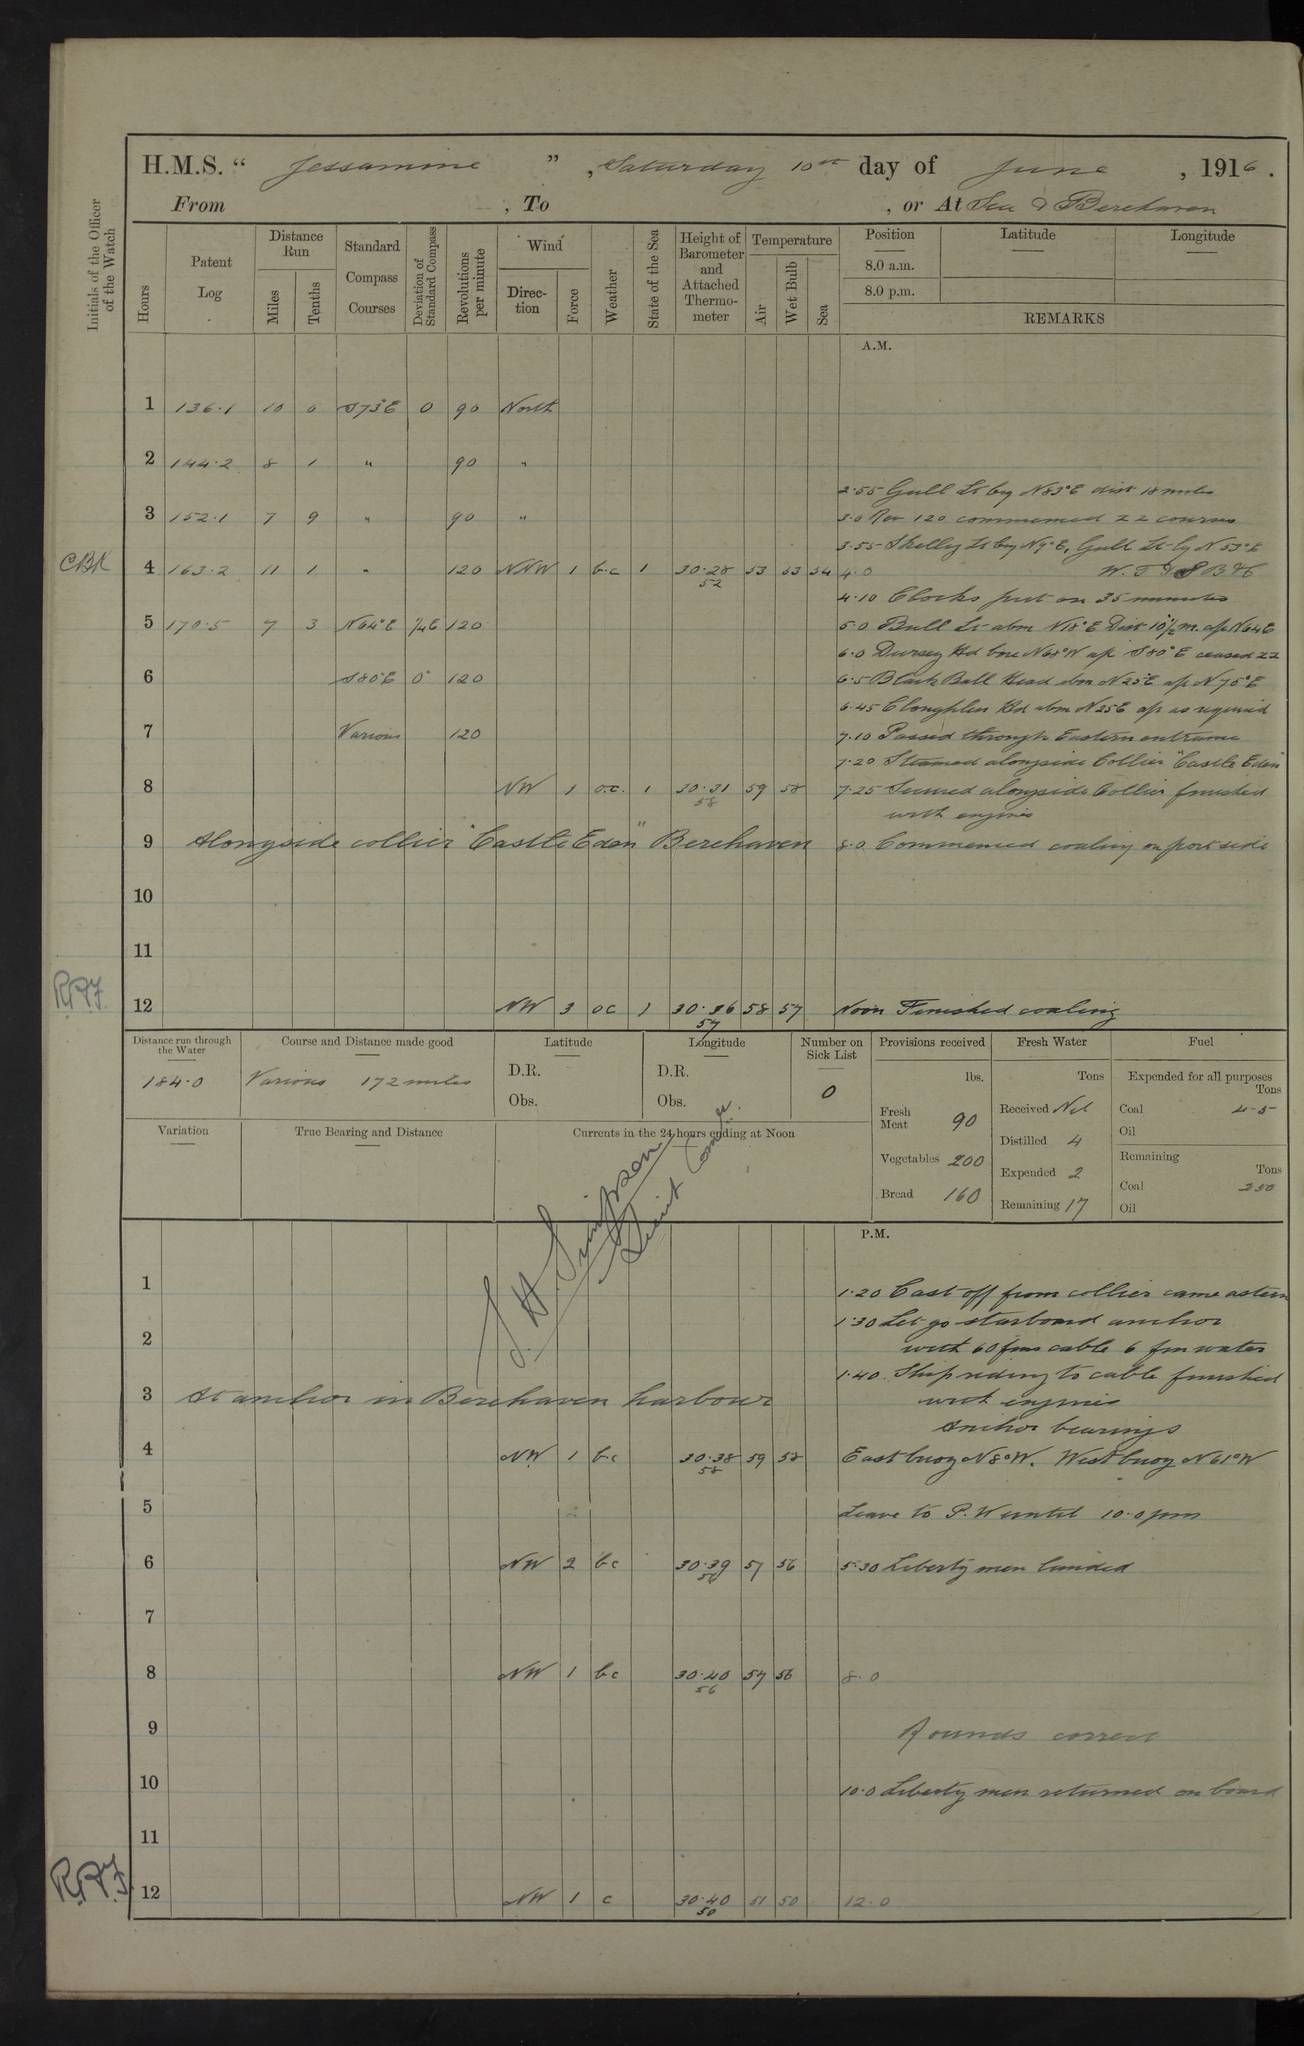 H.M.S. “ Jessamine ” , Saturday 10th day of June , 1916 .
From , To , or At Sea & Berehaven
Initials of the Officer of the Watch
Hours
Patent Log
Distance Run
Miles
Tenths
Standard Compass Courses
Deviation of Standard Compass
Revolutions per minute
Wind
Direction
Force
Weather
State of the Sea
Height of Barometer and Attached Thermometer
Temperature
Air
Wet Bulb
Sea
Position
8.0 a.m.
8.0 p.m.
Latitude
Longitude
REMARKS
A.M.
1 136.1 10 0 S73°E 0 90 North
2 144.2 8 1 " 90 "
2.55 Gull Lt brg N83°E dist 18 miles
3 152.1 7 9 " 90 " 3.0 Rev 120 commenced ZZ courses
3.55 Skelly Lt brg N9°E, Gull Lt brg N53°E
4 163.2 11 1 " 120 NNW 1 b.c 1 30.28 52 53 53 54 4.0
4.10 Clocks put on 35 minutes
5 170.5 7 3 N64°E ¼E 120 5.0 Bull Lt abm N18°E Dist 10½ m. a/c N64E
6.0 Dursey Hd bore N68°W a/c S80°E ceased ZZ
6 S80°E 0° 120 6.5 Black Ball Head abm N25°E a/c N75°E
6.45 Cloughlin Hd abm N25E a/c as required
7 Various 120 7.10 Passed through Eastern entrance
7.20 Steamed alongside Collier "Castle Eden"
8 NW 1 o.c. 1 30.31 58 59 58 7.25 Secured alongside Collier finished
with engines
9 Alongside collier "Castle Eden" Berehaven 8.0 Commenced coaling on port side
10
11
12 NW 3 oc 1 30.36 57 58 57 Noon Finished coaling
Distance run through the Water
184.0
Course and Distance made good
Various 172 miles
Latitude
D.R.
Obs.
Longitude
D.R.
Obs.
Number on Sick List
0
Provisions received
lbs.
Fresh Meat 90
Vegetables 200
Bread 160
Fresh Water
Tons
Received Nil
Distilled 4
Expended 2
Remaining 17
Fuel
Expended for all purposes
Tons
Coal 45
Oil
Remaining
Tons
Coal 250
Oil
Variation
True Bearing and Distance
Currents in the 24 hours ending at Noon
Simpson
Lieut Comdr.
P.M.
1 1.20 Cast off from collier came astern
1.30 Let go starboard anchor
2 with 60 fms cable 6 fm water
1.40 Ship riding to cable finished
3 At anchor in Berehaven harbour with engines
Anchor bearings
4 NW 1 b.c 30.38 58 59 58 East buoy N8°W. West buoy N61°W
5 Leave to P.W until 10.0 pm
6 NW 2 bc 30.39 57 56 5.30 Liberty men landed
7
8 NW 1 bc 30.40 56 57 56 8.0
9 Rounds correct
10 10.0 Liberty men returned on board
11
12 NW 1 c 30.40 50 51 50 12.0